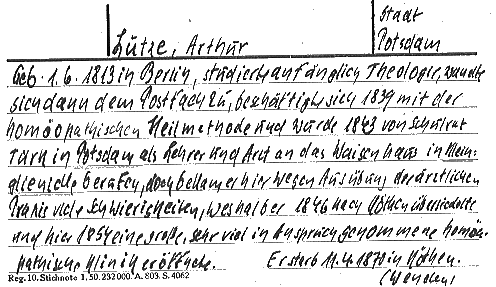 Stadt
Lutze, Arthur Potsdam
Geb. 1.6.1813 in Berlin, studierte anfänglich Theologie, wandte
sich dann dem Postfach zu, beschäftigte sich 1839 mit der
homöopathischen Heilmethode und wurde 1843 von Schulrat
Türk in Potsdam als Lehrer und Arzt an das Waisenhaus in Klein-
glienicke berufen, doch bekam er hier wegen Ausübung der ärztlichen
Praxis viele Schwierigkeiten, weshalb er 1846 nach Köthen übersiedelte
und hier 1854 eine große, sehr viel in Anspruch genommene homöo-
pathische Klinik eröffnete. Er starb 11.4.1870 in Köthen.
Reg. 10. Stichnote 1, 50. 232 000. A. 803. S. 4062